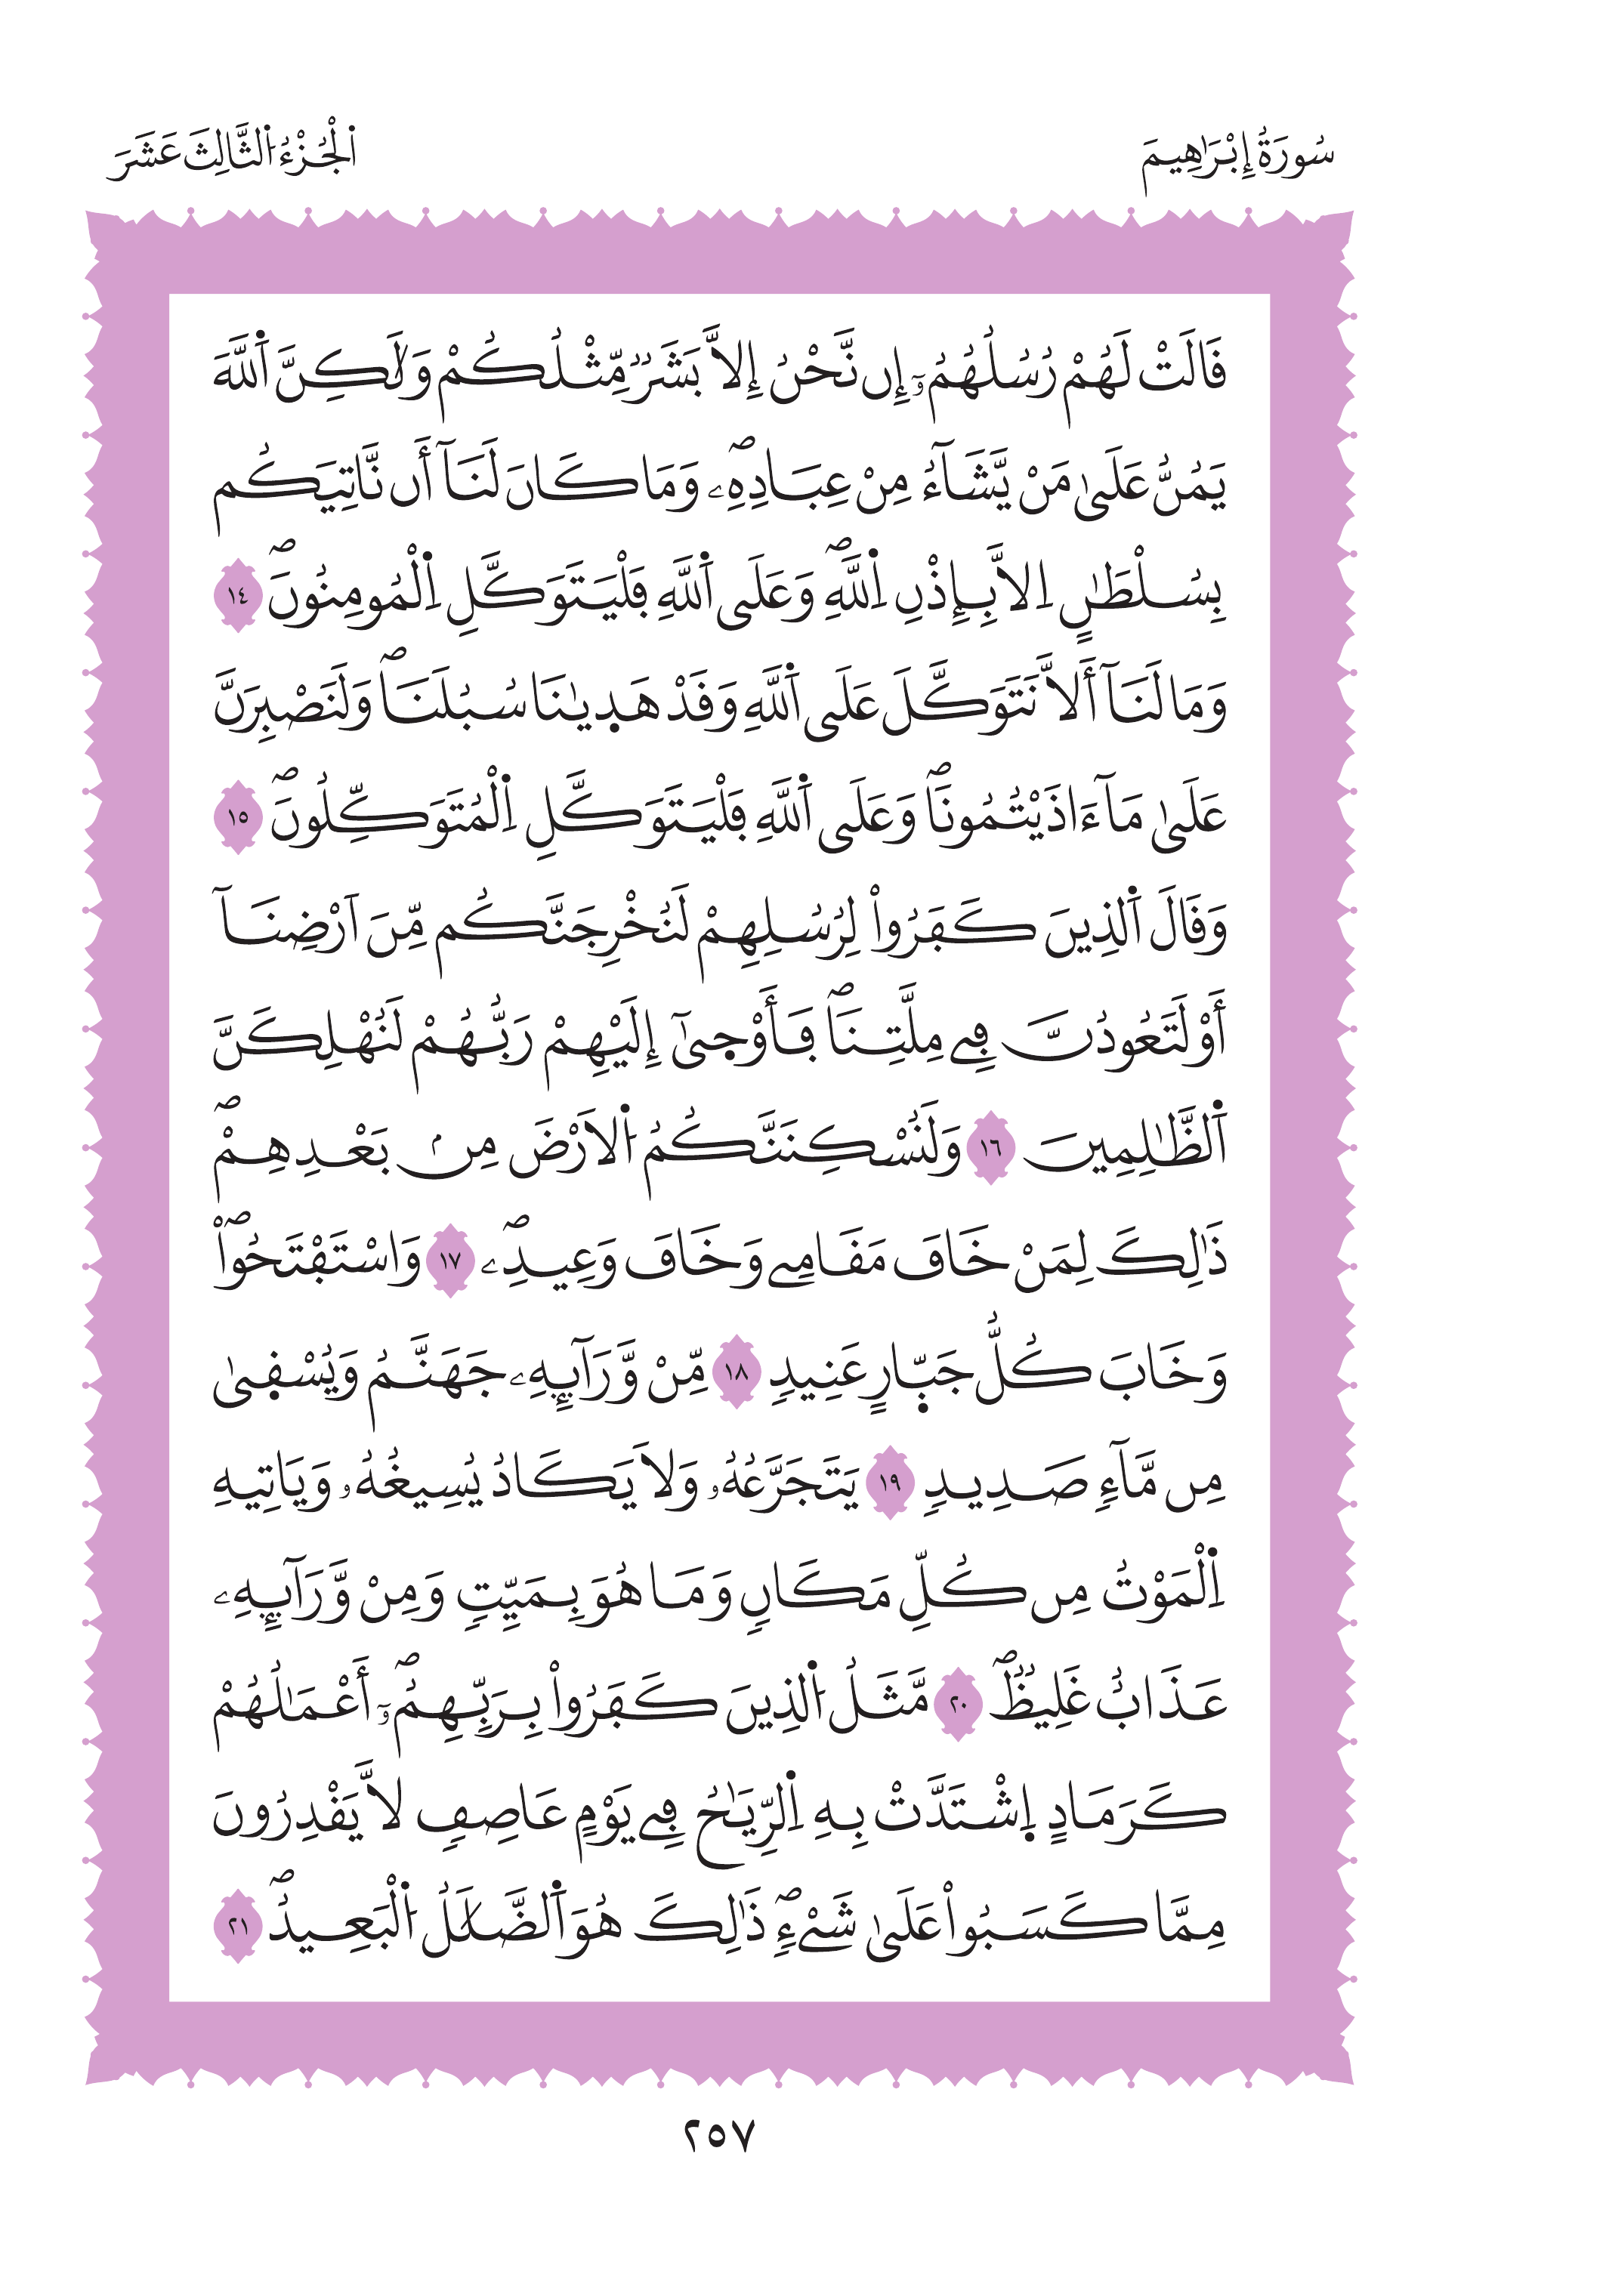 سُورَةُ إِبْرَاهِيمَ
اَلْجُزْءُ اُلثَّالِثَ عَشَرَ
قَالَتْ لَهُمْ رُسُلُهُمُۥٓ إِن نَّحْنُ إِلاَّ بَشَرٌ مِّثْلُكُمْ وَلَٰكِنَّ اَللَّهَ
يَمُنُّ عَلَىٰ مَنْ يَّشَآءُ مِنْ عِبَادِهِۦۖ وَمَا كَانَ لَنَآ أَن نَّاتِيَكُم
بِسُلْطَٰنٍ اِلاَّ بِإِذْنِ اِللَّهِۖ وَعَلَى اَللَّهِ فَلْيَتَوَكَّلِ اِلْمُومِنُونَۖ ١٤
وَمَا لَنَآ أَلاَّ نَتَوَكَّلَ عَلَى اَللَّهِ وَقَدْ هَدِيٰنَا سُبُلَنَاۖ وَلَنَصْبِرَنَّ
عَلَىٰ مَآ ءَاذَيْتُمُونَاۖ وَعَلَى اَللَّهِ فَلْيَتَوَكَّلِ اِلْمُتَوَكِّلُونَۖ ١٥
وَقَالَ اَلذِينَ كَفَرُواْ لِرُسُلِهِمْ لَنُخْرِجَنَّكُم مِّنَ اَرْضِنَآ
أَوْ لَتَعُودُنَّ فِے مِلَّتِنَاۖ فَأَوْحِىٰٓ إِلَيْهِمْ رَبُّهُمْ لَنُهْلِكَنَّ
اَلظَّٰلِمِينَ ١٦ وَلَنُسْكِنَنَّكُمُ اُلاَرْضَ مِنۢ بَعْدِهِمْۖ
ذَٰلِكَ لِمَنْ خَافَ مَقَامِے وَخَافَ وَعِيدِۦۖ ١٧ وَاسْتَفْتَحُواْۖ
وَخَابَ كُلُّ جَبّ۪ارٍ عَنِيدٍ ١٨ مِّنْ وَّرَآئِهِۦ جَهَنَّمُ وَيُسْقِىٰ
مِن مَّآءٍ صَدِيدٍ ١٩ يَتَجَرَّعُهُۥ وَلاَ يَكَادُ يُسِيغُهُۥ وَيَاتِيهِ
اِلْمَوْتُ مِن كُلِّ مَكَانٍ وَمَا هُوَ بِمَيِّتٍ وَمِنْ وَّرَآئِهِۦ
عَذَابٌ غَلِيظٌۖ ٢٠ مَّثَلُ اُلذِينَ كَفَرُواْ بِرَبِّهِمُۥٓۖ أَعْمَٰلُهُمْ
كَرَمَادٍ اِشْتَدَّتْ بِهِ اِلرِّيَٰحُ فِے يَوْمٍ عَاصِفٍ لاَّ يَقْدِرُونَ
مِمَّا كَسَبُواْ عَلَىٰ شَےْءٍۖ ذَٰلِكَ هُوَ اَلضَّلَٰلُ اُلْبَعِيدُۖ ٢١
٢٥٧